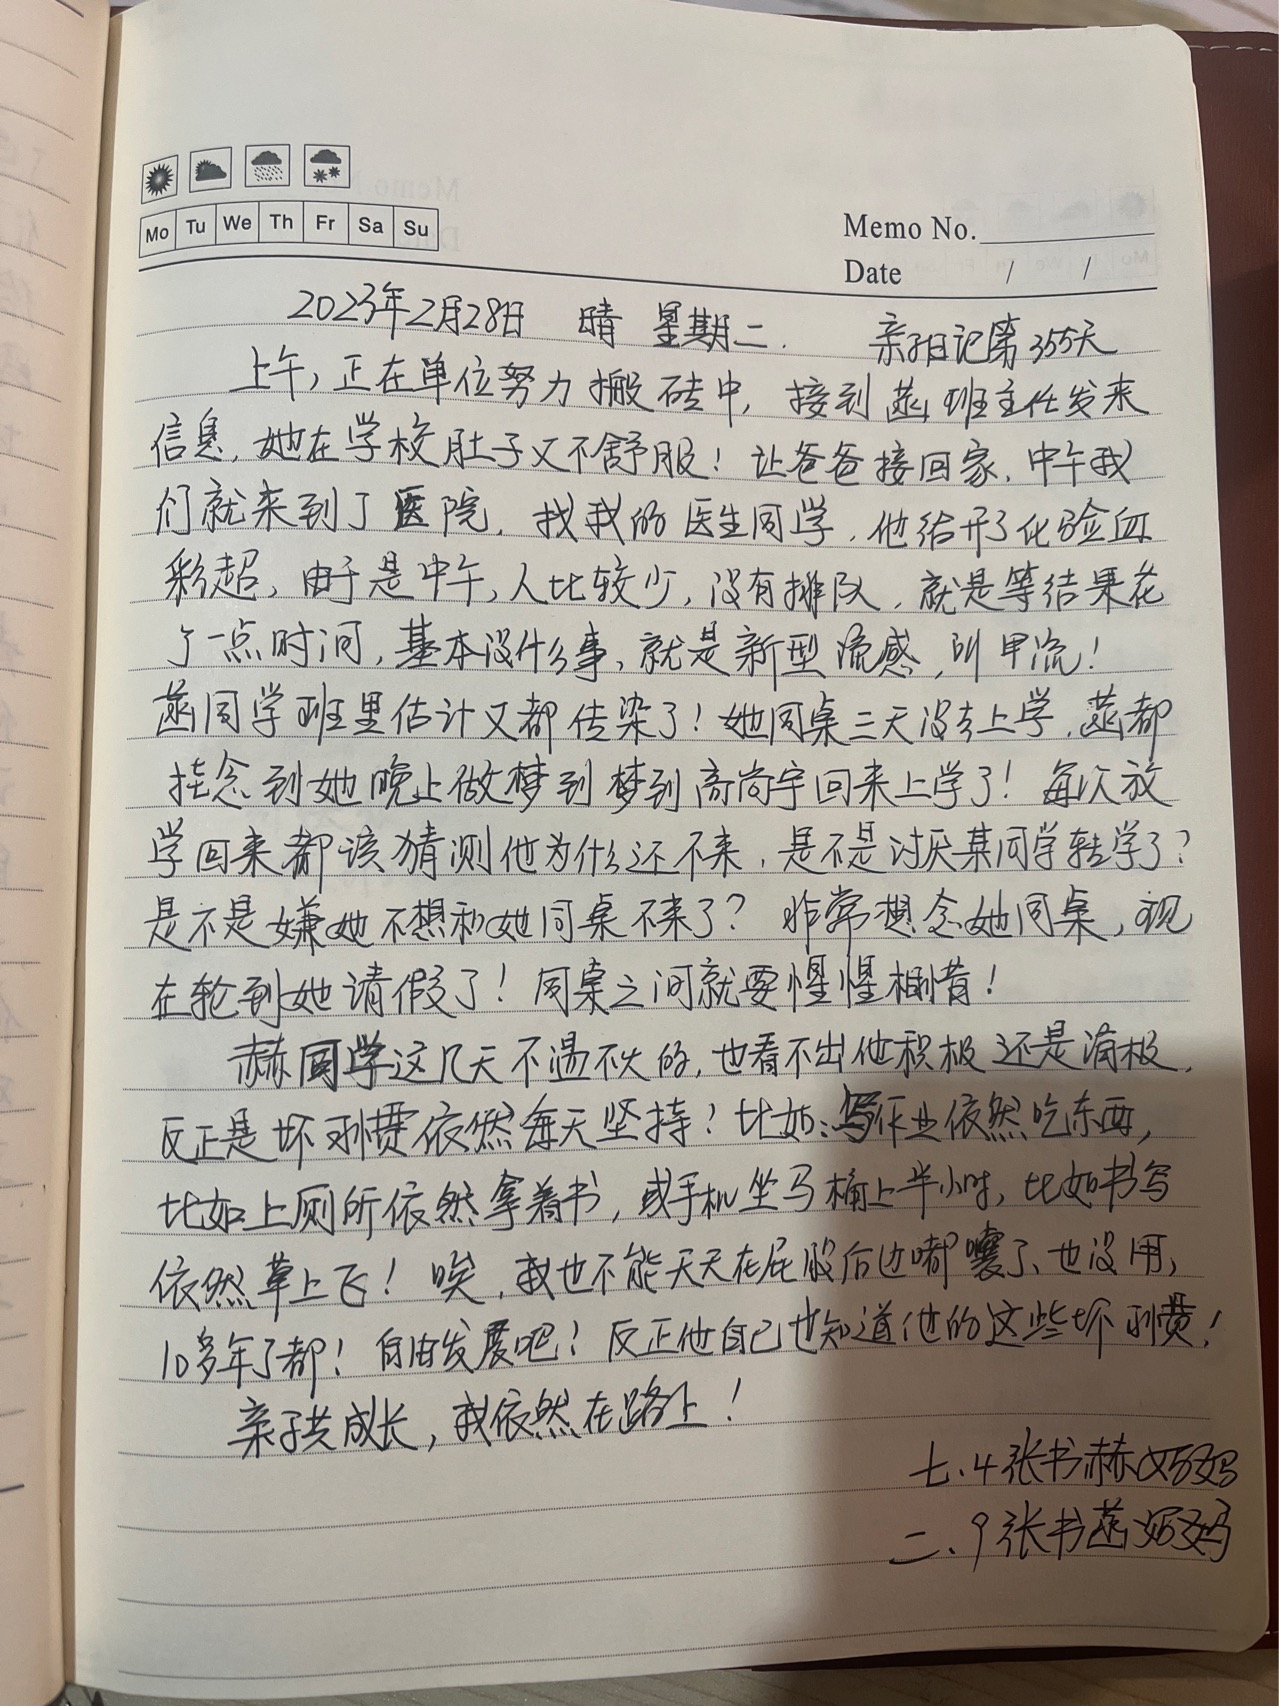 Mo Tu We Th Fr Sa Su
Memo No.
Date / /
2023年2月28日 晴 星期二. 亲子日记第355天
上午,正在单位努力搬砖中,接到菡班主任发来
信息,她在学校肚子又不舒服!让爸爸接回家,中午我
们就来到了医院,找我的医生同学,他给开了化验血
彩超,由于是中午,人比较少,没有排队,就是等结果花
了一点时间,基本没什么事,就是新型流感,叫甲流!
菡同学班里估计又都传染了!她同桌三天没去上学,菡都
挂念到她晚上做梦到梦到高尚宇回来上学了!每次放
学回来都该猜测他为什么还不来,是不是讨厌某同学转学了?
是不是嫌她不想和她同桌不来了?非常想念她同桌,现
在轮到她请假了!同桌之间就要惺惺相惜!
赫同学这几天不温不火的,也看不出他积极还是消极,
反正是坏习惯依然每天坚持!比如:写作业依然吃东西,
比如上厕所依然拿着书,或手机坐马桶上半小时,比如书写
依然草上飞!唉,我也不能天天在屁股后边嘟囔了、也没用,
10多年了都!自由发展吧!反正他自己也知道他的这些坏习惯!
亲子共成长,我依然在路上!
七.4张书赫妈妈
二.9张书菡妈妈